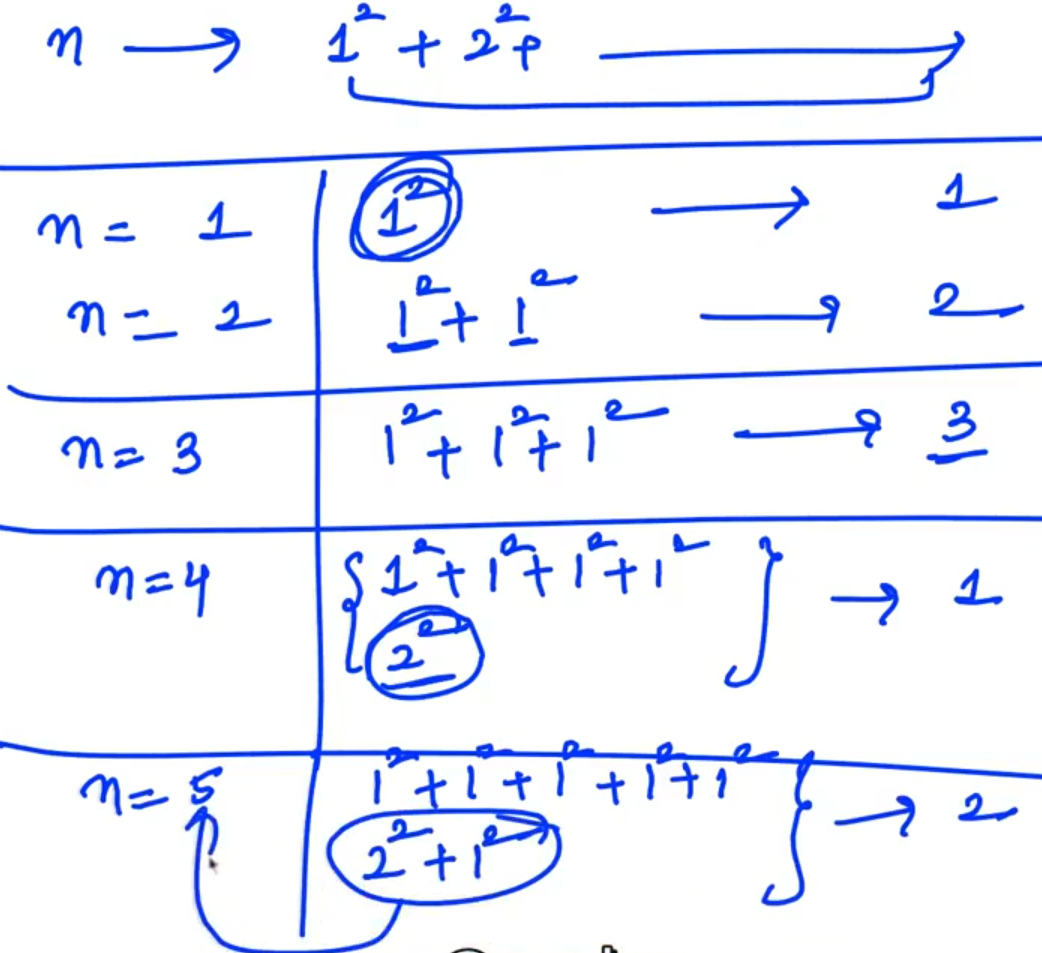 n → 1² + 2² + →
n = 1 1² → 1
n = 2 1² + 1² → 2
n = 3 1² + 1² + 1² → 3
n = 4 { 1² + 1² + 1² + 1² } → 1
2²
n = 5 1² + 1² + 1² + 1² + 1² } → 2
2² + 1²